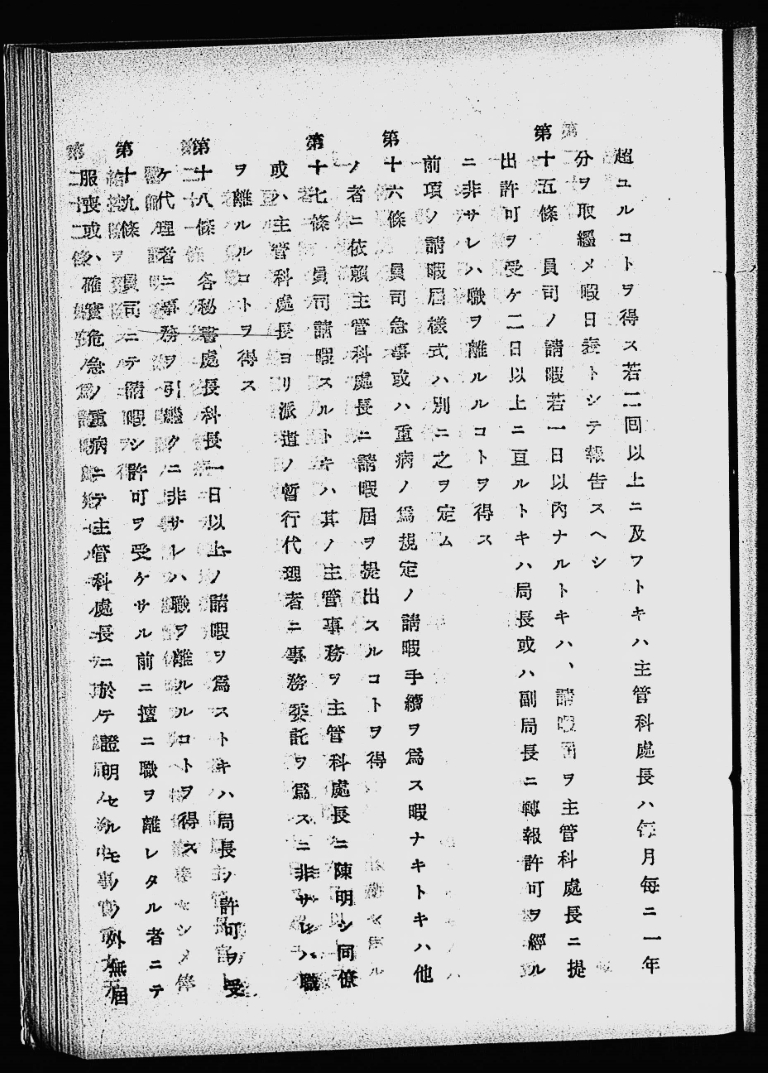 超ユルコトヲ得ス若二回以上ニ及フトキハ主管科處長ハ每月每ニ一年
分ヲ取纒メ暇日表トシテ報告スヘシ
第十五條 員司ノ請暇若一日以內ナルトキハ、請暇屆ヲ主管科處長ニ提
出許可ヲ受ケ二日以上ニ亘ルトキハ局長或ハ副局長ニ轉報許可ヲ經ル
ニ非サレハ職ヲ離ルルコトヲ得ス
前項ノ請暇屆樣式ハ別ニ之ヲ定ム
第十六條 員司急事或ハ重病ノ爲規定ノ請暇手續ヲ爲ス暇ナキトキハ他
ノ者ニ依賴主管科處長ニ請暇屆ヲ提出スルコトヲ得
第十七條 員司請暇スルトキハ其ノ主管事務ヲ主管科處長ニ陳明シ同僚
或ハ主管科處長ヨリ派遣ノ暫行代理者ニ事務委託ヲ爲スニ非サレハ職
ヲ離ルルコトヲ得ス
第十八條 各秘書處長科長一日以上ノ請暇ヲ爲ストキハ局長ノ許可ヲ受
ケ代理者ニ事務ヲ引繼クニ非サレハ職ヲ離ルルコトヲ得ス
第十九條 員司ニテ請暇シ許可ヲ受ケサル前ニ擅ニ職ヲ離レタル者ニテ
服喪或ハ確實危急ノ重病ニテ主管科處長ニ於テ證明セルモノノ外無屆